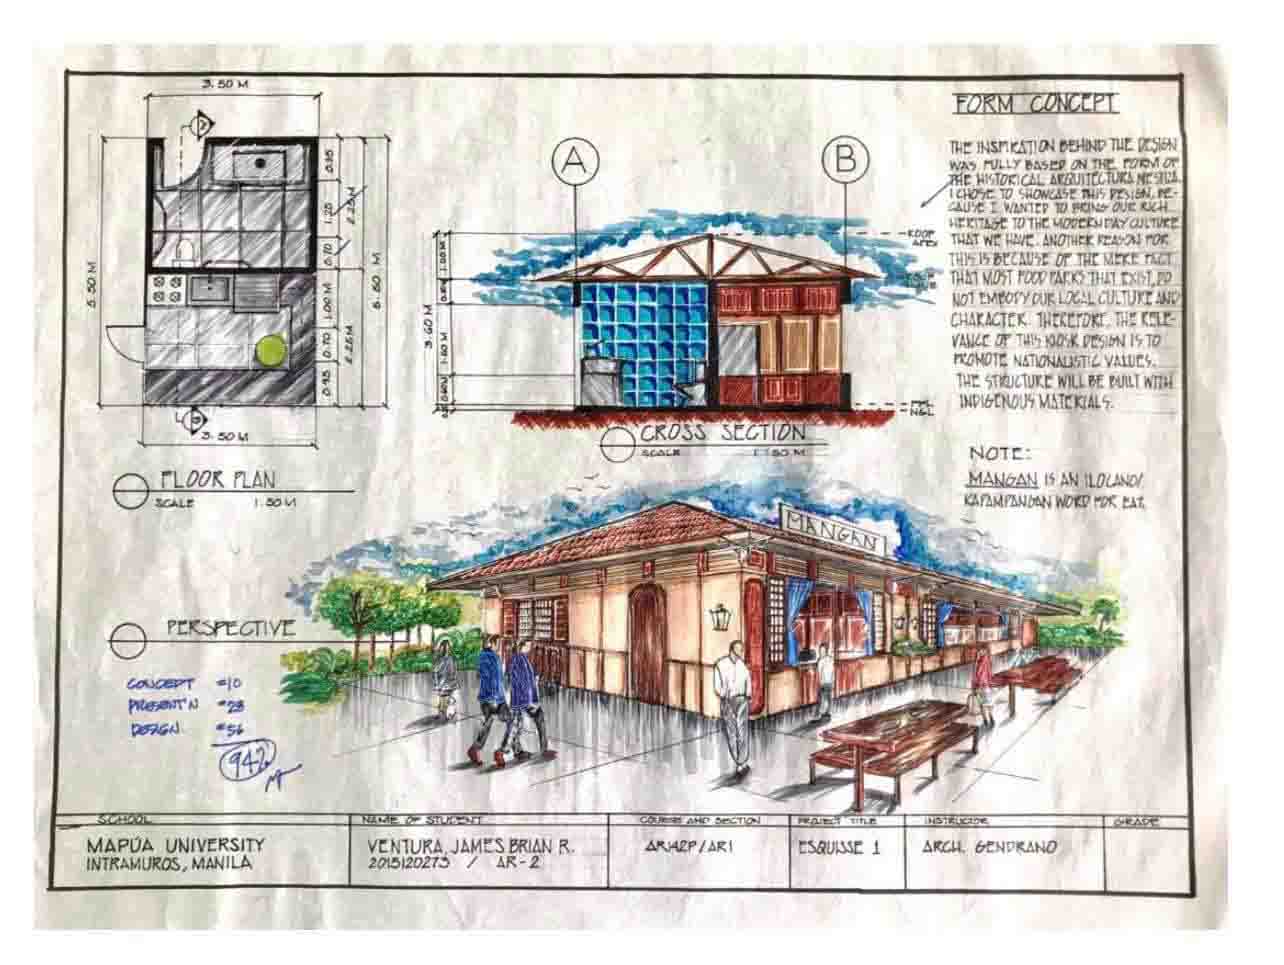 3.50 M
2
0.95
1.25
2.25M
0.70
5.50 M
5.50 M
1.00 M
0.70
2.25M
0.95
3.50 M
FLOOR PLAN
SCALE 1:50 M
A
B
ROOF
APEX
1.00 M
3.60 M
1.80 M
FFL
NGL
CROSS SECTION
SCALE 1:50 M
FORM CONCEPT
THE INSPIRATION BEHIND THE DESIGN
WAS FULLY BASED ON THE FORM OF
THE HISTORICAL ARQUITECTURA MESTIZA.
I CHOSE TO SHOWCASE THIS DESIGN, BE-
CAUSE I WANTED TO BRING OUR RICH
HERITAGE TO THE MODERN DAY CULTURE
THAT WE HAVE. ANOTHER REASON FOR
THIS IS BECAUSE OF THE MERE FACT
THAT MOST FOOD PARKS THAT EXIST, DO
NOT EMBODY OUR LOCAL CULTURE AND
CHARACTER. THEREFORE, THE RELE-
VANCE OF THIS KIOSK DESIGN IS TO
PROMOTE NATIONALISTIC VALUES.
THE STRUCTURE WILL BE BUILT WITH
INDIGENOUS MATERIALS.
NOTE:
MANGAN IS AN ILOCANO/
KAPAMPANGAN WORD FOR EAT.
MANGAN
PERSPECTIVE
CONCEPT =10
PRESENT'N =28
DESIGN =56
94%
SCHOOL
MAPÚA UNIVERSITY
INTRAMUROS, MANILA
NAME OF STUDENT
VENTURA, JAMES BRIAN R.
2015120273 / AR-2
COURSE AND SECTION
AR142P/AR1
PROJECT TITLE
ESQUISSE 1
INSTRUCTOR
ARCH. GENDRANO
GRADE